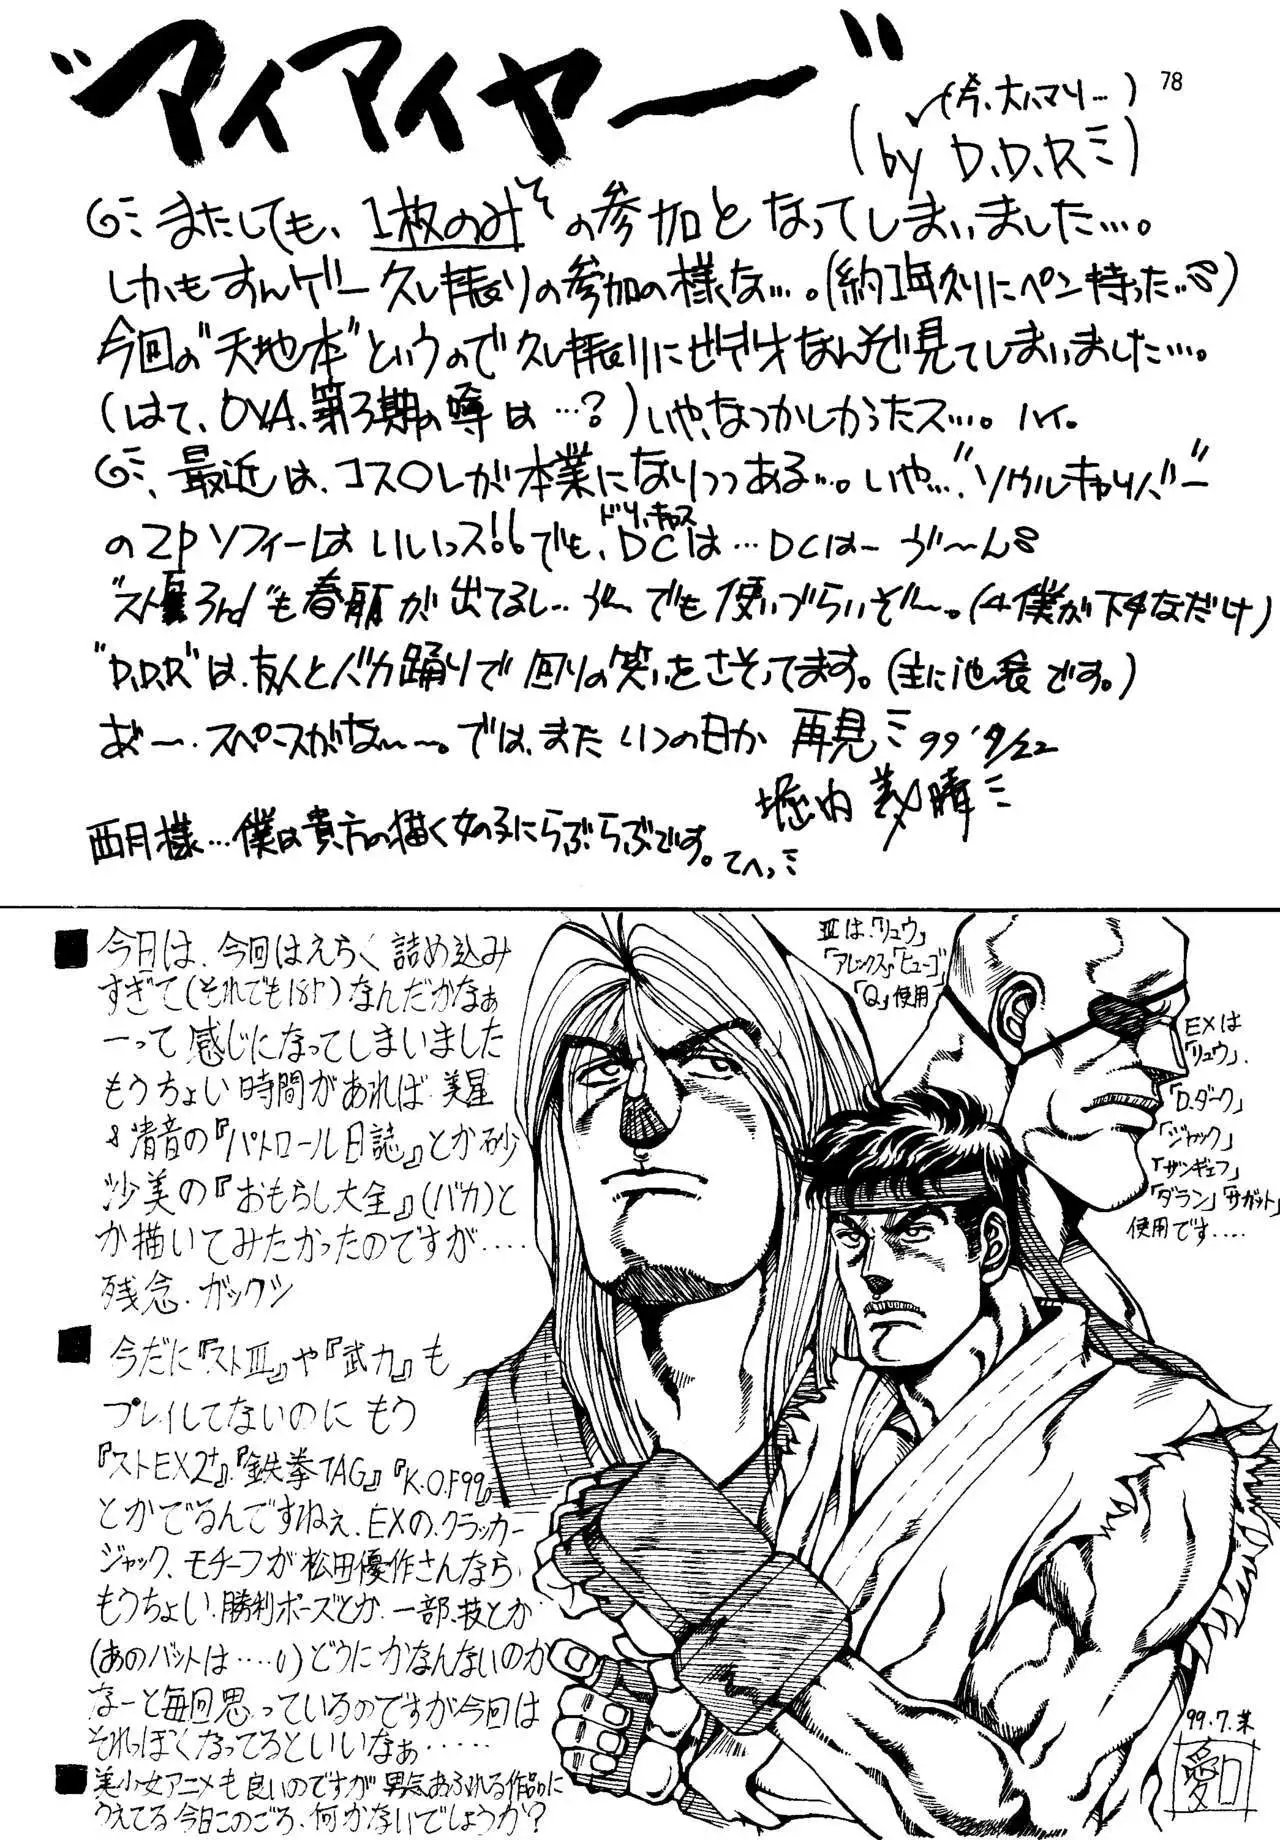 "アイアイヤー"
78
(今、大ハマリ…)
(by D.D.R)
またしても、1枚のみの参加となってしまいました…。
しかもすんげー久し振りの参加の様な…。(約1年久りにペン持った…)
今回の"天地本"というので久し振りにビデオなんぞ見てしまいました…。
(はて、OVA、第3期の噂は…?)いや、なつかしかったス…。ハイ。
最近は、コス○レが本業になりつつある…。いや…、"ソウルキャリバー"
ドリキャス
の2Pソフィーはいいっス!!でも、DCは…DCはーゔ〜ん
"スト3rd"も春麗が出てるし…ゔ〜でも使いづらいぞ〜。(僕が下手なだけ)
"D.D.R"は、友人とバカ踊りで回りの笑いをさそってます。(主に池袋です。)
あ〜、スペースがな〜〜。では、また いつの日か 再見 99'8/22
堀内 義晴
西月様…僕は貴方の描く女の子にらぶらぶです。てへっ
■今日は、今回はえらく詰め込み
すぎて(それでも18P)なんだかなぁ
ーって感じになってしまいました
もうちょい時間があれば、美星
&清音の『パトロール日誌』とか砂
沙美の『おもらし大全』(バカ)と
か描いてみたかったのですが‥‥
残念、ガックシ
■今だに『ストⅢ』や『武力』も
プレイしてないのにもう
『ストEX2+』『鉄拳TAG』『K.O.F99』
とかでるんですねぇ、EXの、クラッカー
ジャック、モチーフが松田優作さんなら
もうちょい、勝利ポーズとか、一部、技とか
(あのバットは‥‥)どうにかなんないのか
なーと毎回思っているのですが今回は
それっぽくなってるといいなぁ‥‥‥
■美少女アニメも良いのですが男気あふれる作品に
うえてる今日このごろ、何かないでしょうか?
Ⅲは、「リュウ」
「アレックス」「ヒューゴ」
「Q」使用
EXは
「リュウ」、
「D.ダーク」
「ジャック」
「ザンギェフ」
「ダラン」「サガット」
使用です‥‥
99.7.末
愛口